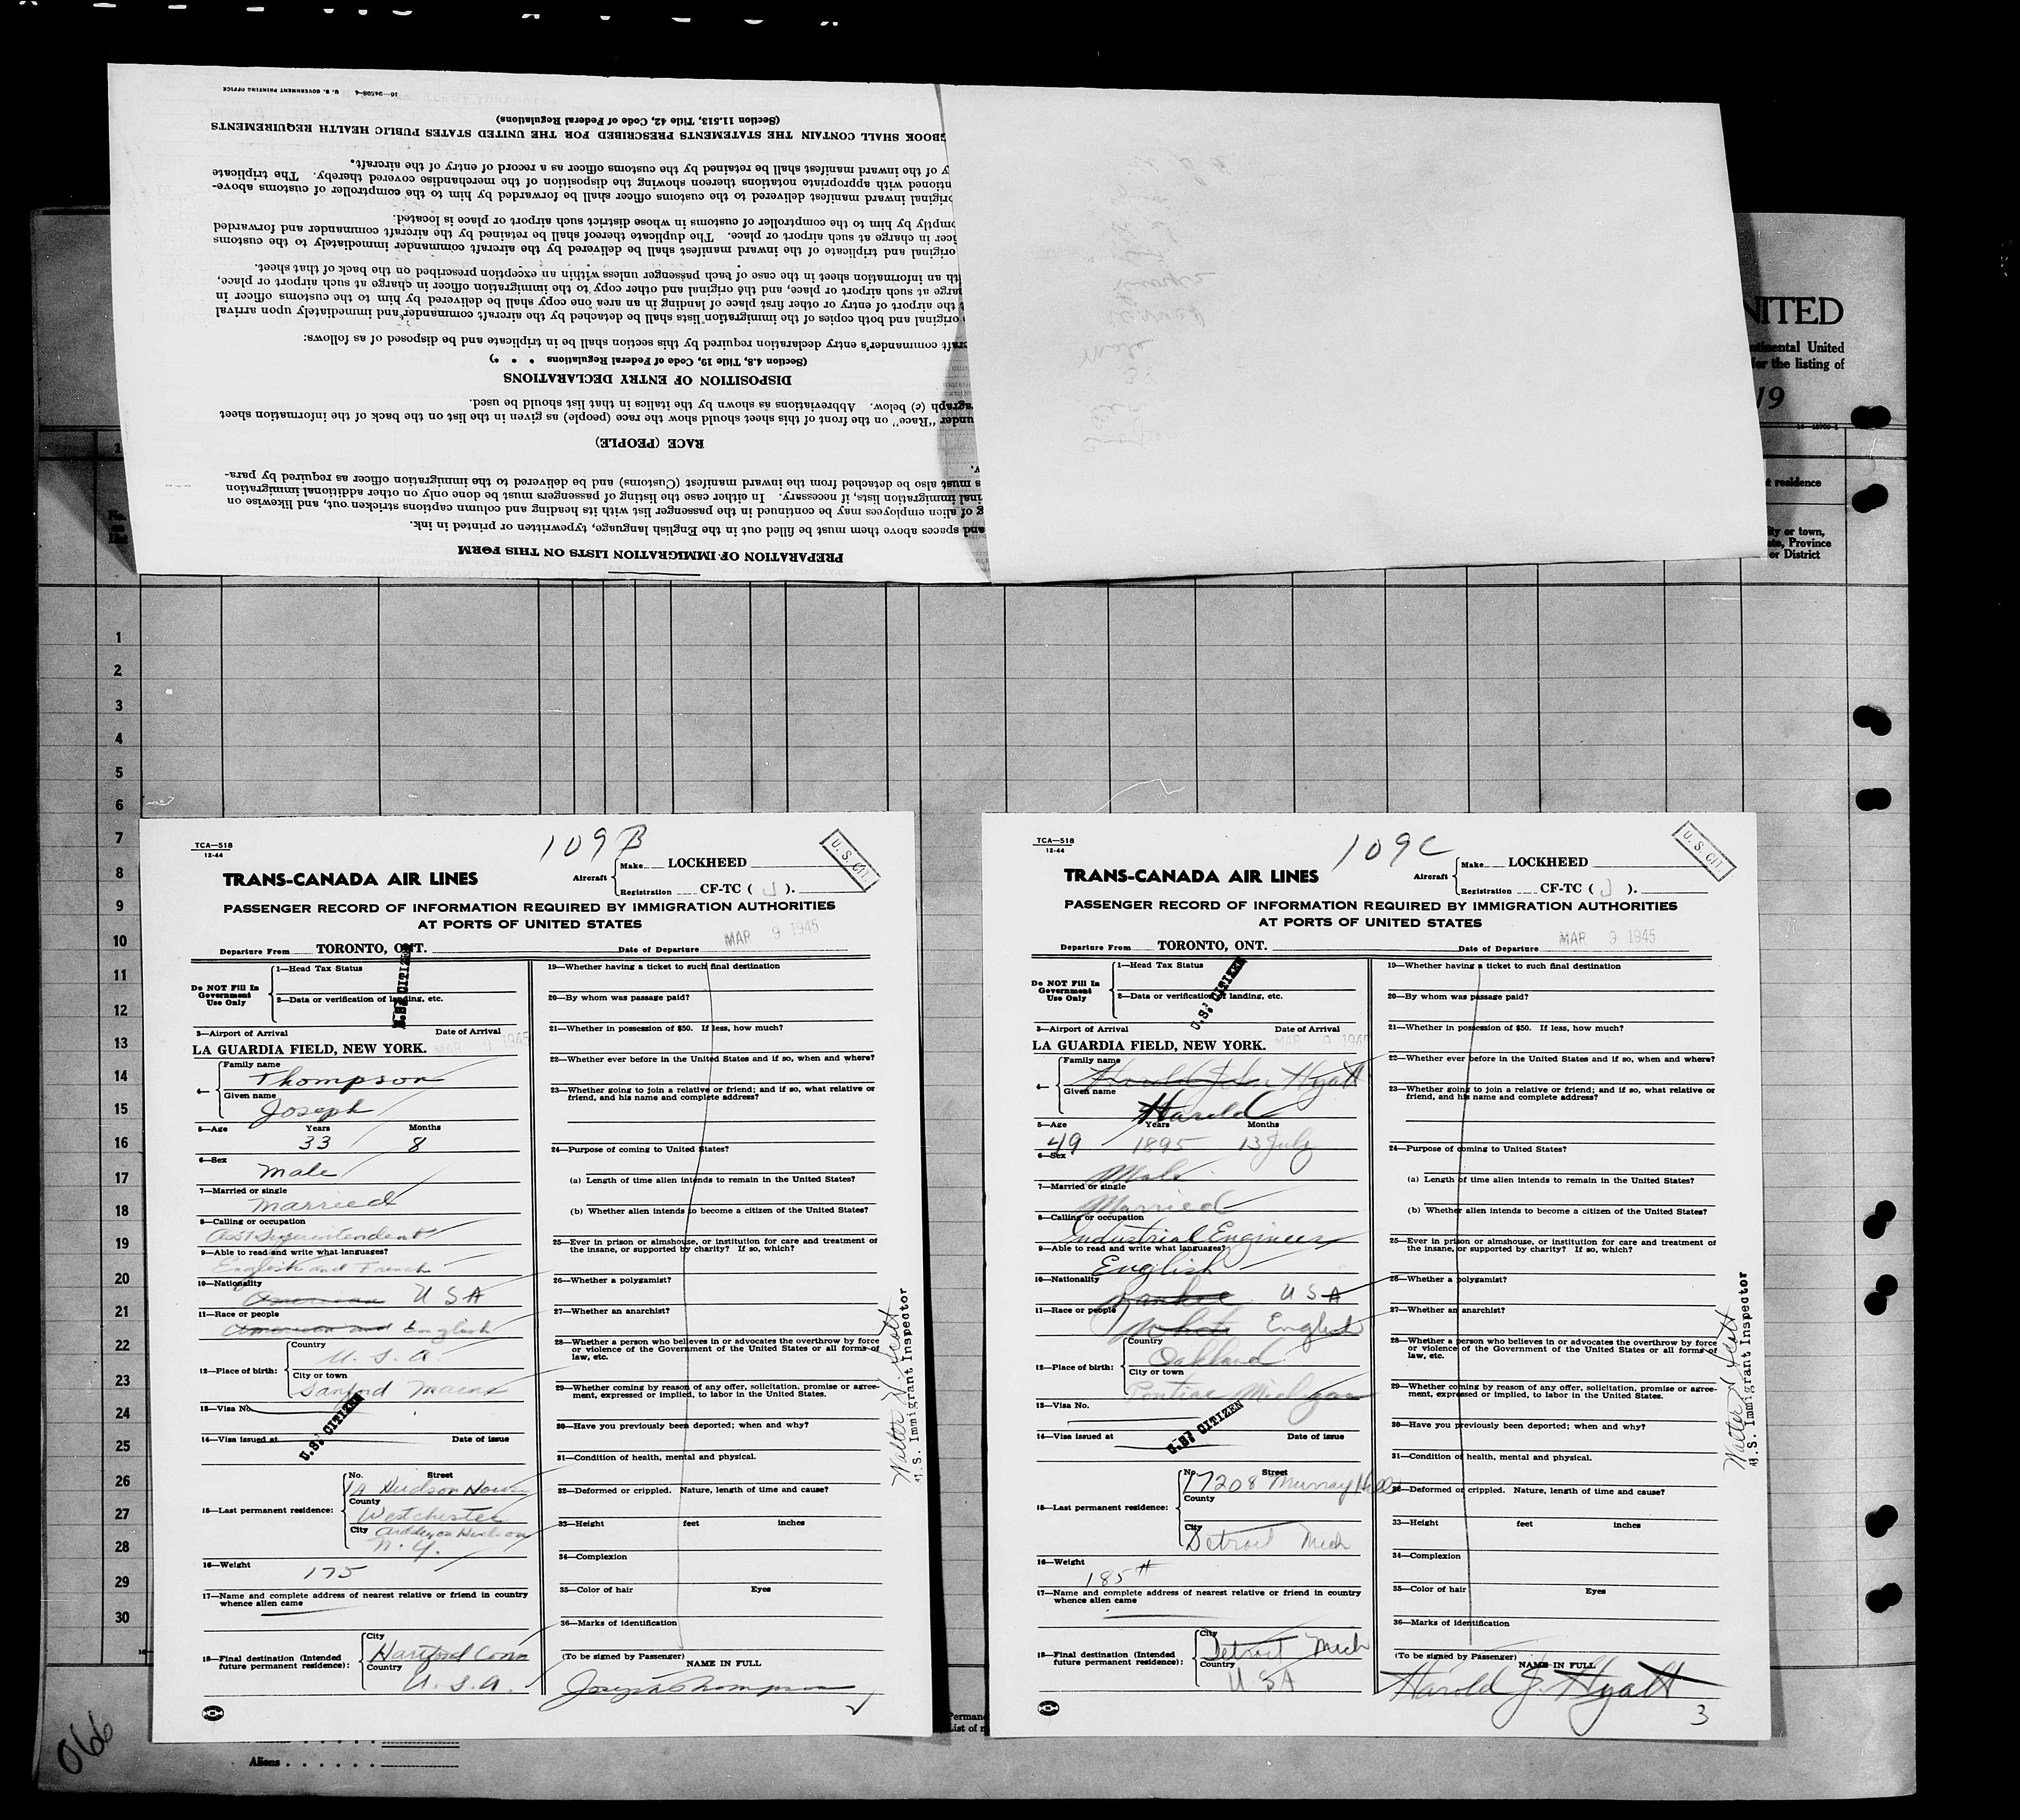 16—24508-4 U. S. GOVERNMENT PRINTING OFFICE
(Section 11.513, Title 42, Code of Federal Regulations)
GBOOK SHALL CONTAIN THE STATEMENTS PRESCRIBED FOR THE UNITED STATES PUBLIC HEALTH REQUIREMENTS
y of the inward manifest shall be retained by the customs officer as a record of entry of the aircraft.
tioned with appropriate notations thereon showing the disposition of the merchandise covered thereby. The triplicate
original inward manifest delivered to the customs officer shall be forwarded by him to the comptroller of customs above-
omptly by him to the comptroller of customs in whose district such airport or place is located.
icer in charge at such airport or place. The duplicate thereof shall be retained by the aircraft commander and forwarded
original and triplicate of the inward manifest shall be delivered by the aircraft commander immediately to the customs
th an information sheet in the case of each passenger unless within an exception prescribed on the back of that sheet.
arge at such airport or place, and the original and other copy to the immigration officer in charge at such airport or place,
t the airport of entry or other first place of landing in an area one copy shall be delivered by him to the customs officer in
original and both copies of the immigration lists shall be detached by the aircraft commander and immediately upon arrival
raft commander's entry declaration required by this section shall be in triplicate and be disposed of as follows:
(Section 4.8, Title 19, Code of Federal Regulations * * *)
DISPOSITION OF ENTRY DECLARATIONS
agraph (c) below. Abbreviations as shown by the italics in that list should be used.
under "Race" on the front of this sheet should show the race (people) as given in the list on the back of the information sheet
RACE (PEOPLE)
s must also be detached from the inward manifest (Customs) and be delivered to the immigration officer as required by para-
inal immigration lists, if necessary. In either case the listing of passengers must be done only on other additional immigration
g of alien employees may be continued in the passenger list with its heading and column captions stricken out, and likewise on
and spaces above them must be filled out in the English language, typewritten or printed in ink.
PREPARATION OF IMMIGRATION LISTS ON THIS FORM
NITED
ntinental United
for the listing of
19
t residence
ity or town,
ate, Province
or District
1
2
3
4
5
6
7
8
9
10
11
12
13
14
15
16
17
18
19
20
21
22
23
24
25
26
27
28
29
30
TCA—518
12-44
109 B
U. S. CIT.
TRANS-CANADA AIR LINES
Aircraft
Make LOCKHEED
Registration CF-TC ( J ).
PASSENGER RECORD OF INFORMATION REQUIRED BY IMMIGRATION AUTHORITIES
AT PORTS OF UNITED STATES
Departure From TORONTO, ONT. Date of Departure MAR 9 1945
Do NOT Fill In Government Use Only
1—Head Tax Status
2—Data or verification of landing, etc.
U.S. CITIZEN
3—Airport of Arrival Date of Arrival
LA GUARDIA FIELD, NEW YORK. MAR 9 1945
4— Family name
Thompson
Given name
Joseph
5—Age Years Months
33 8
6—Sex
Male
7—Married or single
Married
8—Calling or occupation
Ass't Superintendent
9—Able to read and write what languages?
English and French
10—Nationality
American USA
11—Race or people
American and English
12—Place of birth:
Country
U. S. A.
City or town
Sanford Maine
13—Visa No.
U.S. CITIZEN
14—Visa issued at Date of issue
15—Last permanent residence:
No. Street
1A Hudson House
County
Westchester
City Ardsley on Hudson
N. Y.
16—Weight
175
17—Name and complete address of nearest relative or friend in country
whence alien came
18—Final destination (Intended
future permanent residence):
City
Hartford Conn
Country
U. S. A.
19—Whether having a ticket to such final destination
20—By whom was passage paid?
21—Whether in possession of $50. If less, how much?
22—Whether ever before in the United States and if so, when and where?
23—Whether going to join a relative or friend; and if so, what relative or
friend, and his name and complete address?
24—Purpose of coming to United States?
(a) Length of time alien intends to remain in the United States?
(b) Whether alien intends to become a citizen of the United States?
25—Ever in prison or almshouse, or institution for care and treatment of
the insane, or supported by charity? If so, which?
26—Whether a polygamist?
27—Whether an anarchist?
28—Whether a person who believes in or advocates the overthrow by force
or violence of the Government of the United States or all forms of
law, etc.
29—Whether coming by reason of any offer, solicitation, promise or agree-
ment, expressed or implied, to labor in the United States.
30—Have you previously been deported; when and why?
31—Condition of health, mental and physical.
32—Deformed or crippled. Nature, length of time and cause?
33—Height feet inches
34—Complexion
35—Color of hair Eyes
36—Marks of identification
(To be signed by Passenger)
NAME IN FULL
Joseph Thompson
2
Walter N. Scott
U.S. Immigrant Inspector
TCA—518
12-44
109C
U. S. CIT.
TRANS-CANADA AIR LINES
Aircraft
Make LOCKHEED
Registration CF-TC ( J ).
PASSENGER RECORD OF INFORMATION REQUIRED BY IMMIGRATION AUTHORITIES
AT PORTS OF UNITED STATES
Departure From TORONTO, ONT. Date of Departure MAR 9 1945
Do NOT Fill In Government Use Only
1—Head Tax Status
2—Data or verification of landing, etc.
U.S. CITIZEN
3—Airport of Arrival Date of Arrival
LA GUARDIA FIELD, NEW YORK. MAR 9 1945
4— Family name
Harold John Hyatt
Given name
Harold
5—Age Years Months
49 1895 13 July
6—Sex
Male
7—Married or single
Married
8—Calling or occupation
Industrial Engineer
9—Able to read and write what languages?
English
10—Nationality
Yankee USA
11—Race or people
White English
12—Place of birth:
Country
Oakland
City or town
Pontiac Michigan
13—Visa No.
U.S. CITIZEN
14—Visa issued at Date of issue
15—Last permanent residence:
No. Street
17208 Murray Hill
County
City
Detroit Mich
16—Weight
185#
17—Name and complete address of nearest relative or friend in country
whence alien came
18—Final destination (Intended
future permanent residence):
City
Detroit Mich
Country
USA
19—Whether having a ticket to such final destination
20—By whom was passage paid?
21—Whether in possession of $50. If less, how much?
22—Whether ever before in the United States and if so, when and where?
23—Whether going to join a relative or friend; and if so, what relative or
friend, and his name and complete address?
24—Purpose of coming to United States?
(a) Length of time alien intends to remain in the United States?
(b) Whether alien intends to become a citizen of the United States?
25—Ever in prison or almshouse, or institution for care and treatment of
the insane, or supported by charity? If so, which?
26—Whether a polygamist?
27—Whether an anarchist?
28—Whether a person who believes in or advocates the overthrow by force
or violence of the Government of the United States or all forms of
law, etc.
29—Whether coming by reason of any offer, solicitation, promise or agree-
ment, expressed or implied, to labor in the United States.
30—Have you previously been deported; when and why?
31—Condition of health, mental and physical.
32—Deformed or crippled. Nature, length of time and cause?
33—Height feet inches
34—Complexion
35—Color of hair Eyes
36—Marks of identification
(To be signed by Passenger)
NAME IN FULL
Harold J. Hyatt
3
Walter N Scott
U.S. Immigrant Inspector
Perman
List of
Aliens
066